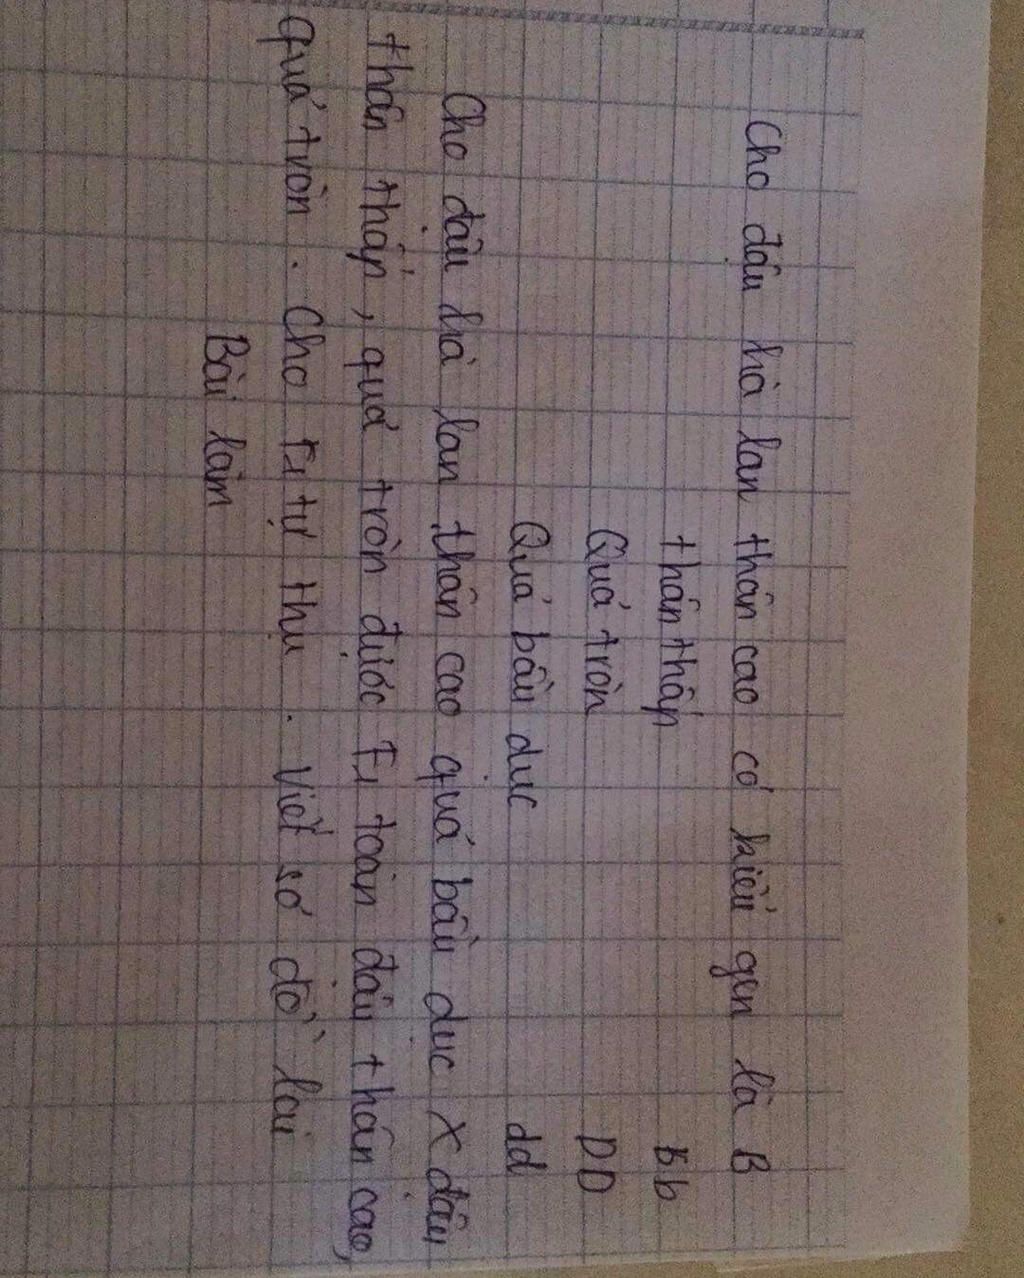 Cho đậu hà lan thân cao có kiểu gen là B
thân thấp b b
Quả tròn D D
Quả bầu dục dd
Cho đậu hà lan thân cao quả bầu dục X đậu
thân thấp, quả tròn được F1 toàn đậu thân cao,
quả tròn . Cho F1 tự thụ . Viết sơ đồ lai
Bài làm